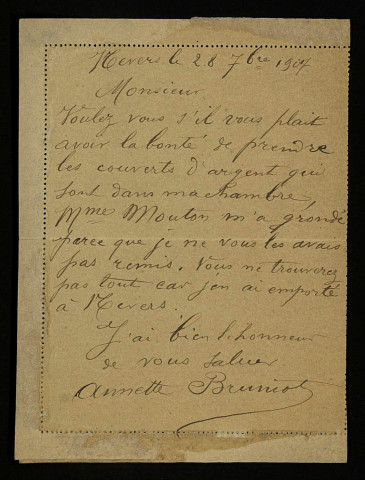 Nevers le 28 7bre 1904
Monsieur
Voulez vous s'il vous plait
avoir la bonté de prendre
les couverts d'argent qui
sont dans ma chambre,
Mme Mouton m'a grondé
parce que je ne vous les avais
pas remis. Vous ne trouverez
pas tout car j'en ai emporté
à Nevers.
J'ai bien l'honneur
de vous saluer
Annette Bruniot